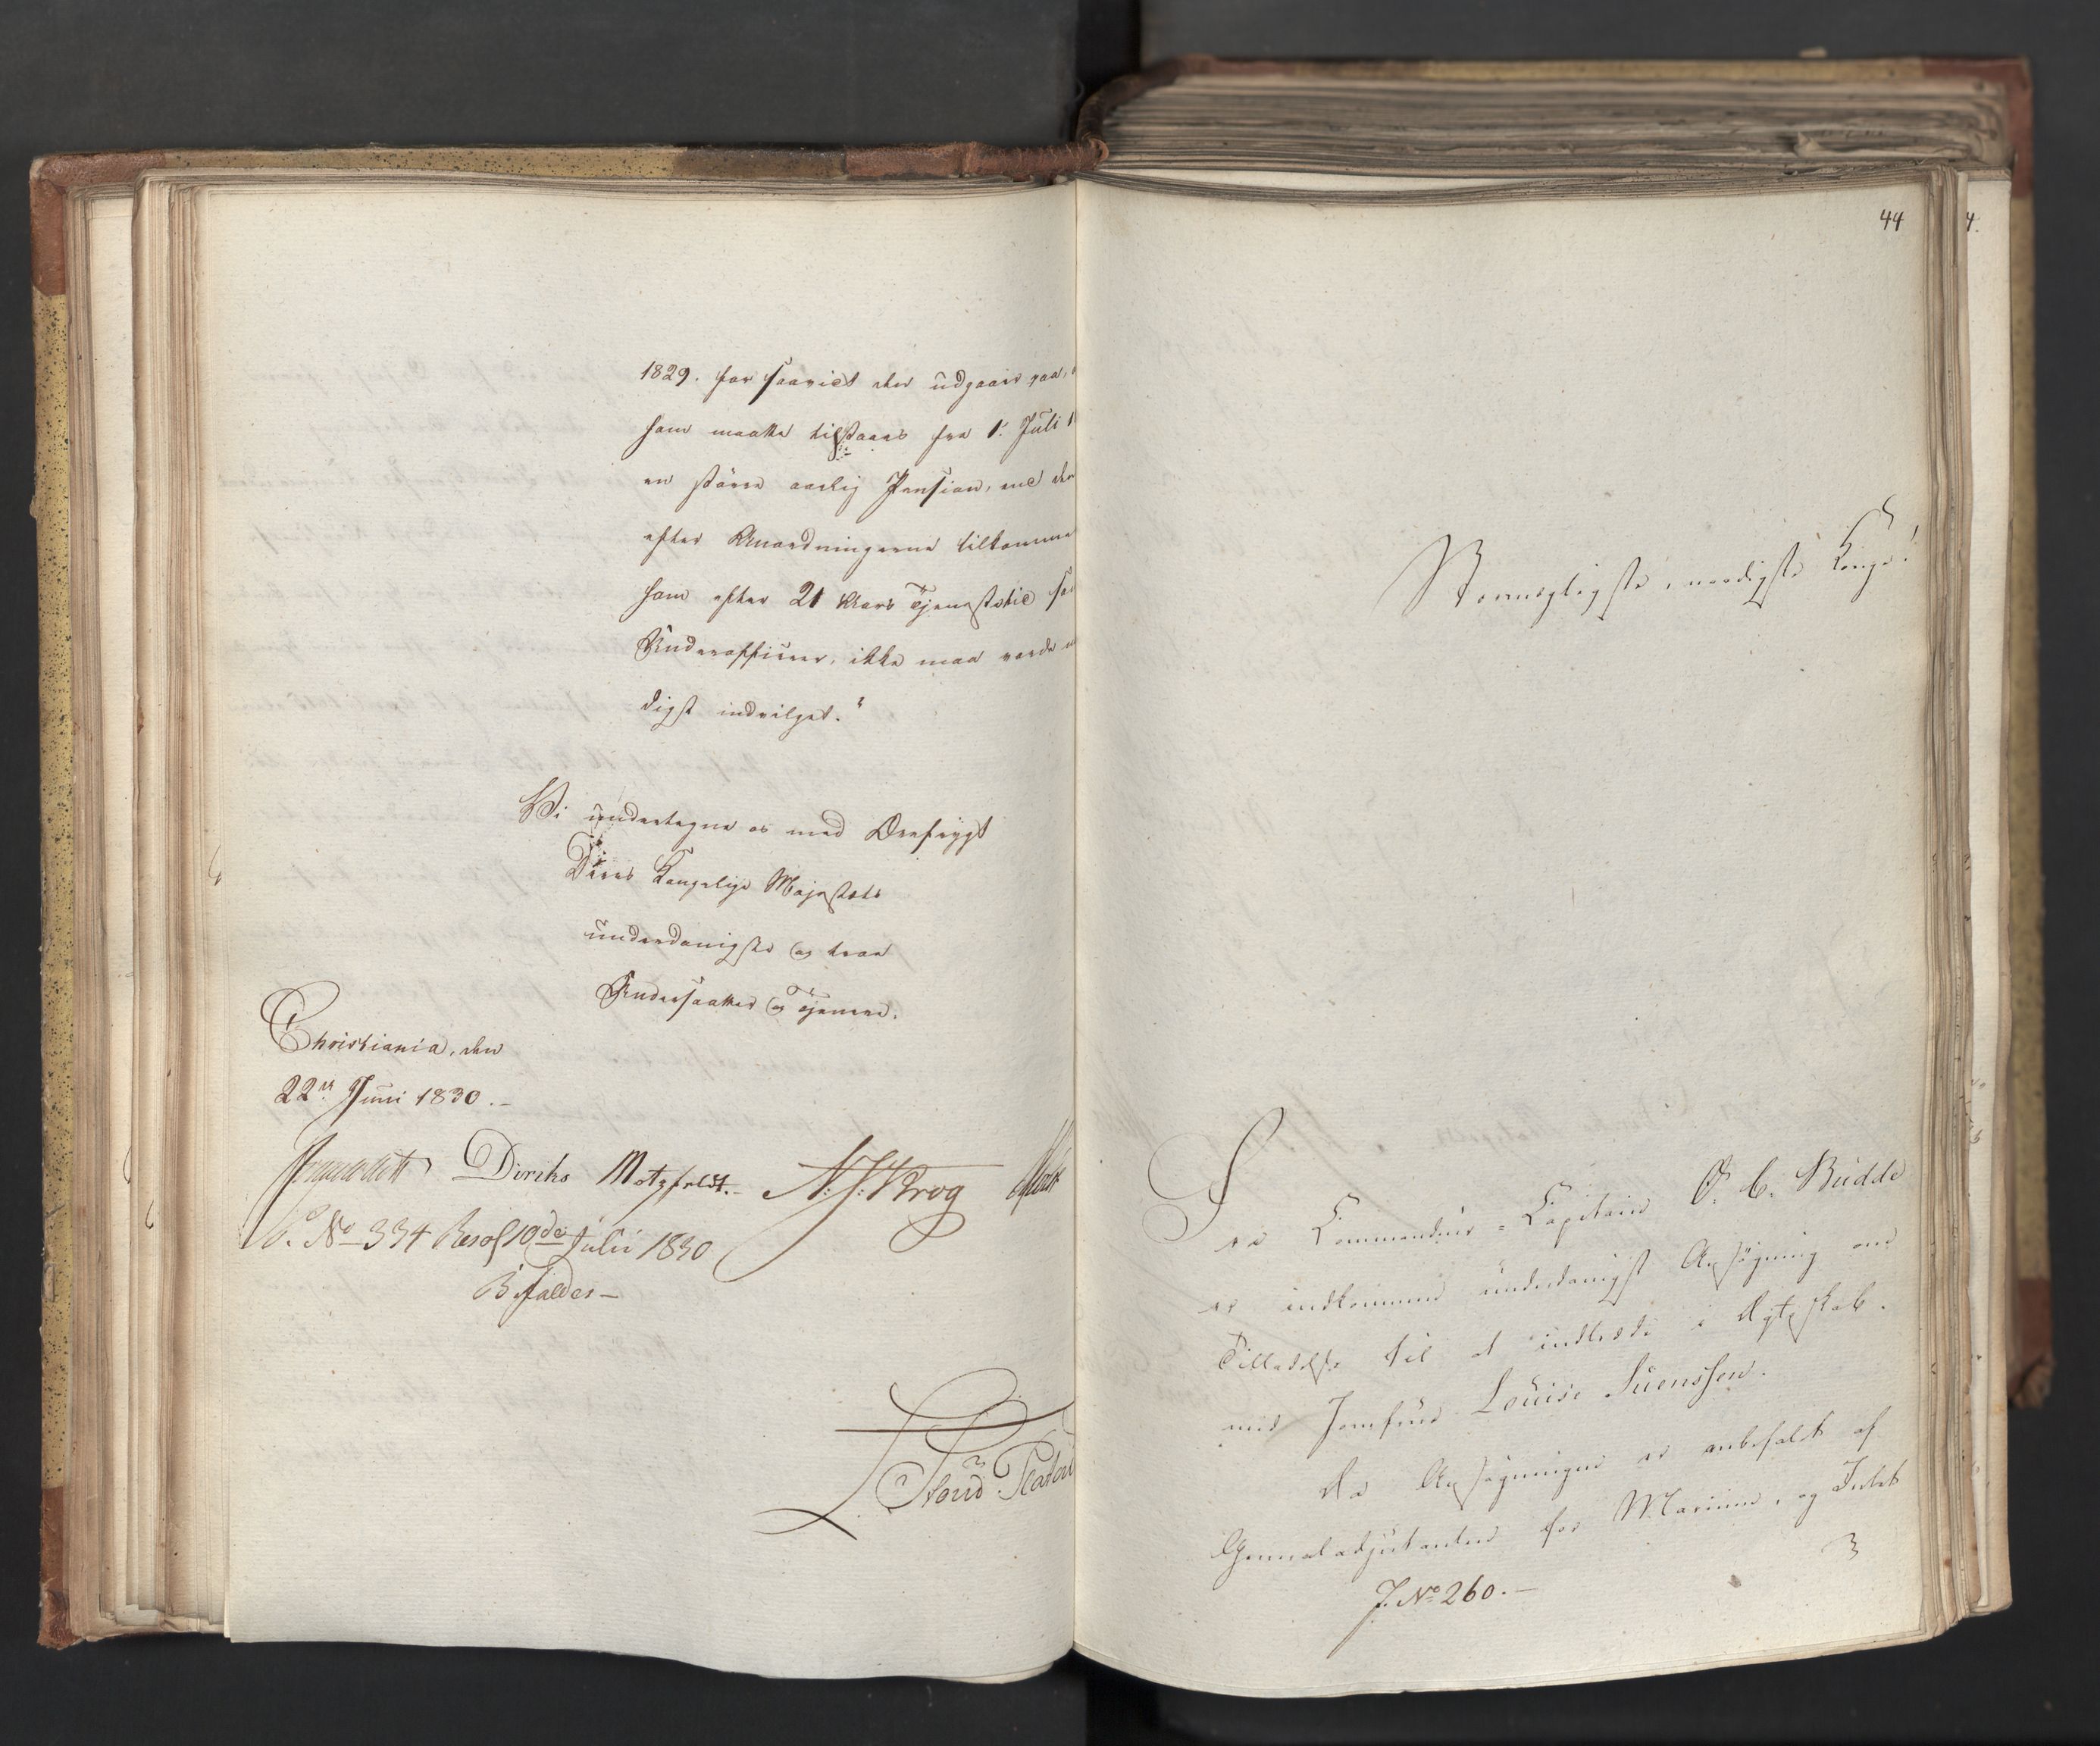 1829. for saavidt den udgaaer paa,
ham maatte tilstaaes fra 1. Juli 1
en større aarlig Pension, end den
efter Anordningerne tilkomme
ham efter 21 Aars Tjenestetid som
Underofficeer, ikke maa vorde
digst indvilget."
Vi undertegne os med Ærefrygt
Deres Kongelige Majestæts
underdanigste og troe
Undersaatter og Tjenere.
Christiania, den
22de Juni 1830.-
Diriks Motzfeldt.- N: J: Krog
No 334 Resol 10de Julii 1830
Bifaldes-
44
Stormægtigste, naadigste Konge!
Fra Commandeur-Capitain O. C. Budde
er indkommen underdanigst Ansøgning om
Tilladelse til at indtræde i Ægteskab
med Jomfrue Louise Suenssen.
Da Ansøgningen er anbefalet af
Generaladjutanten for Marinen, og Intet
J. No 260.-